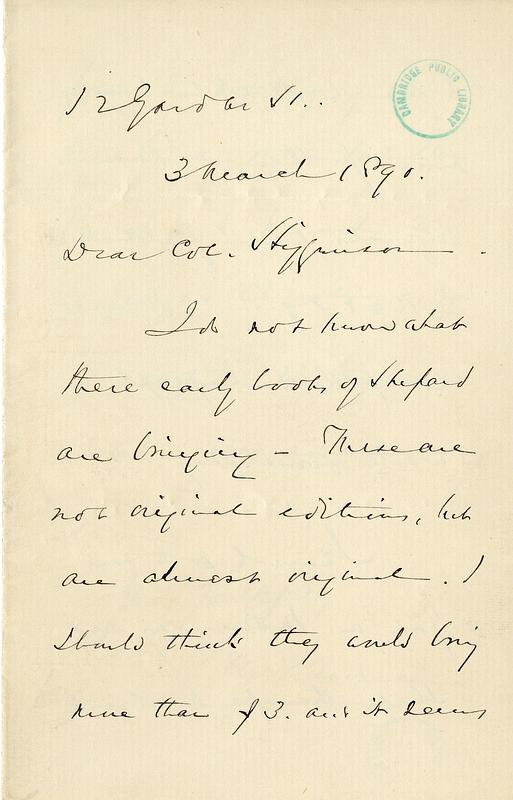 CAMBRIDGE PUBLIC LIBRARY
12 Garden St..
3 March 1890.
Dear Col. Higginson.
I do not know what
these early books of Shepard
are bringing – These are
not original editions, but
are almost original. I
should think they would bring
more than $3. and it seems